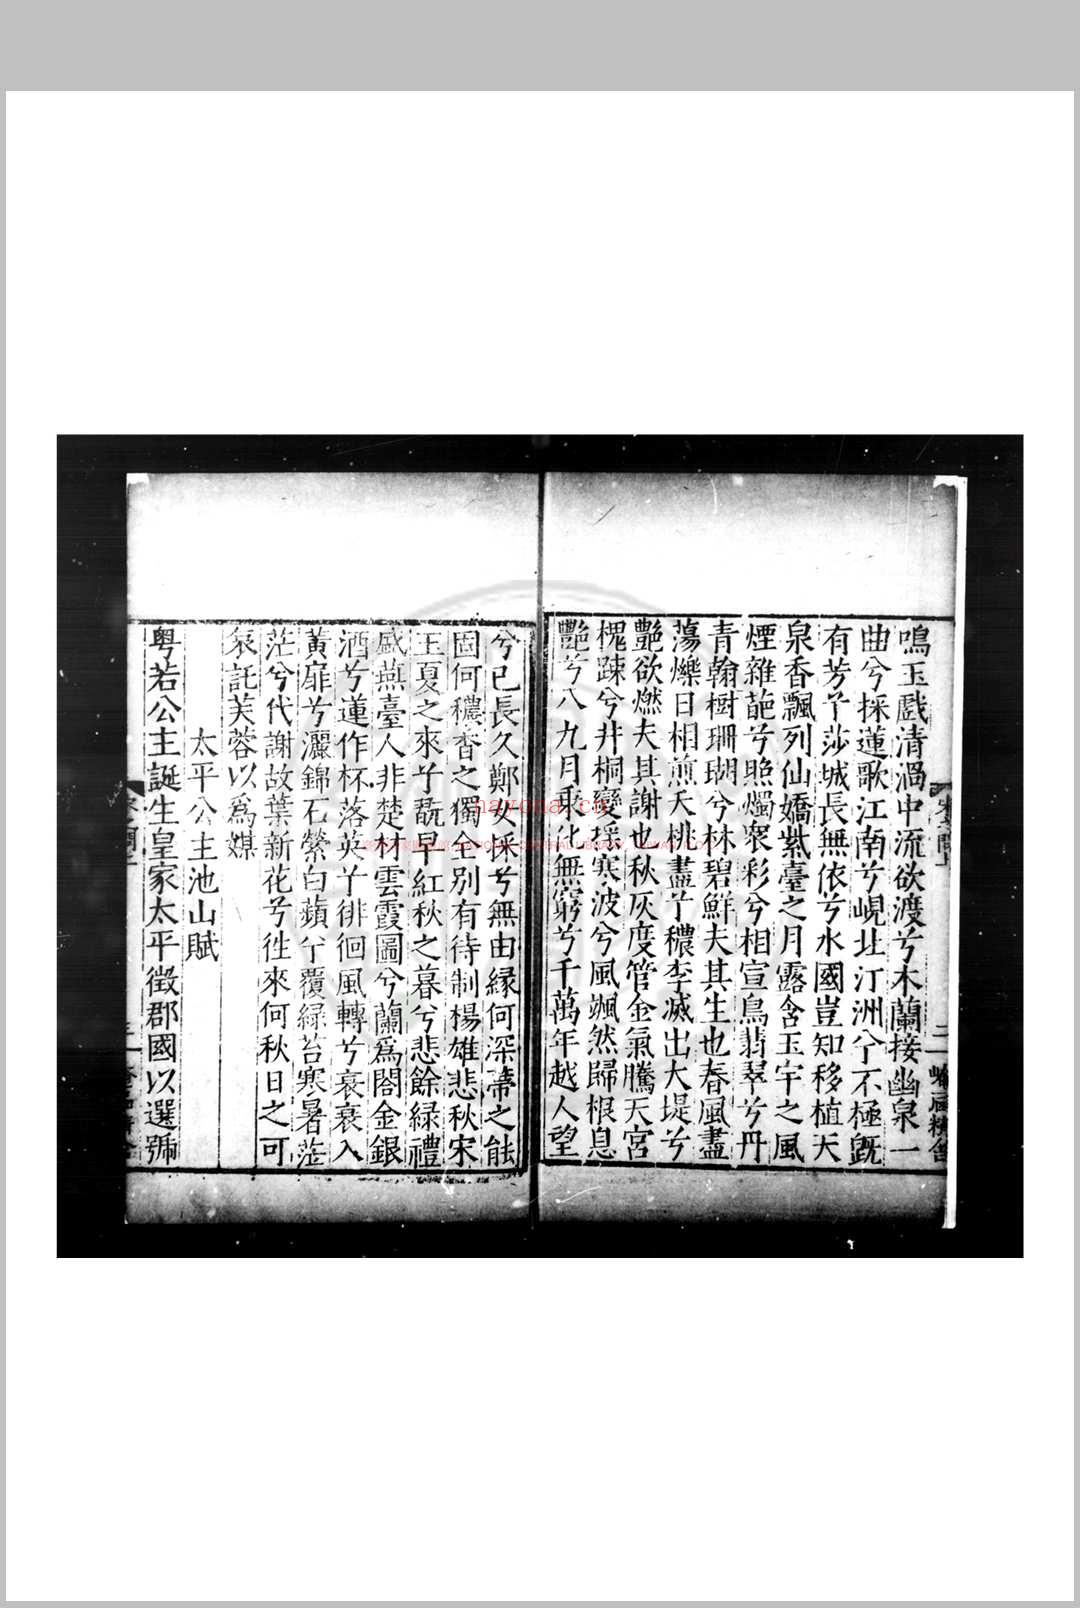 鳴玉戲清渦中流欲渡兮木蘭接幽泉一
曲兮採蓮歌江南兮峴北汀洲兮不極旣
有芳兮莎城長無依兮水國豈知移植天
泉香飄列仙嬌紫臺之月露含玉宇之風
煙雜葩兮照燭衆彩兮相宣鳥翡翠兮丹
青翰樹珊瑚兮林碧鮮夫其生也春風盡
蕩爍日相煎夭桃盡兮穠李滅出大堤兮
艷欲燃夫其謝也秋灰度管金氣騰天宮
槐疎兮井桐變搖寒波兮風颯然歸根息
艷兮八九月乘化無窮兮千萬年越人望
兮已長久鄭女採兮無由緣何深蔕之能
固何穠香之獨全別有待制楊雄悲秋宋
玉夏之來兮翫早紅秋之暮兮悲餘綠禮
盛燕臺人非楚材雲霞圖兮蘭爲閣金銀
酒兮蓮作杯落英兮徘徊風轉兮衰衰入
黃扉兮灑錦石縈白蘋兮覆綠苔寒暑茫
茫兮代謝故葉新花兮往來何秋日之可
哀託芙蓉以爲媒
太平公主池山賦
粤若公主誕生皇家太平徵郡國以選號
宋之問上
二
崦西精舍
nayona.cn